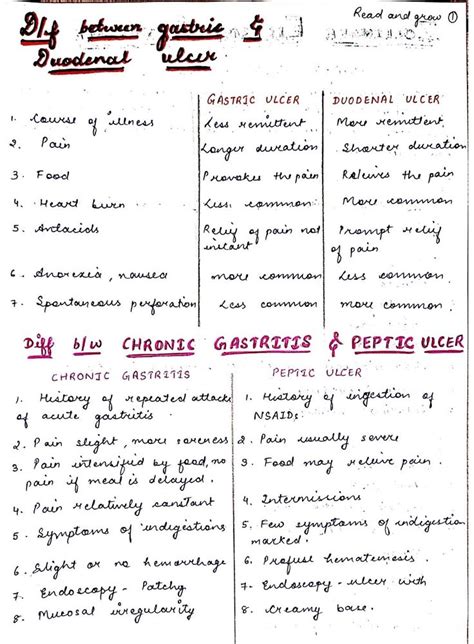 Read and grow ①
D/f between gastric &
Duodenal ulcer
GASTRIC ULCER DUODENAL ULCER
1. Course of illness Less remittent More remittent
2. Pain Longer duration Shorter duration
3. Food Provokes the pain Relieves the pain
4. Heart burn Less common More common
5. Antacids Relief of pain not Prompt relief
instant of pain
6. Anorexia, nausea more common Less common
7. Spontaneous perforation Less common more common.
Diff b/w CHRONIC GASTRITIS & PEPTIC ULCER
CHRONIC GASTRITIS PEPTIC ULCER
1. History of repeated attacks 1. History of ingestion of
of acute gastritis. NSAIDs
2. Pain slight, more soreness 2. Pain usually severe
3. Pain intensified by food, no 3. Food may relieve pain.
pain if meal is delayed.
4. Pain relatively constant 4. Intermissions
5. Symptoms of indigestions 5. Few symptoms of indigestion
marked.
6. Slight or no hemorrhage 6. Profuse hematemesis.
7. Endoscopy - Patchy 7. Endoscopy - ulcer with
8. Mucosal irregularity 8. Creamy base.